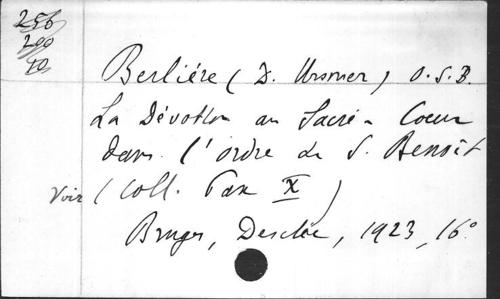 256
200
10
Berlière (D. Ursmer) O.S.B.
La Dévotion au Sacré-Coeur
dans l'ordre de S. Benoît
Voir (Coll. Pax X)
Bruges, Desclée, 1923, 16°